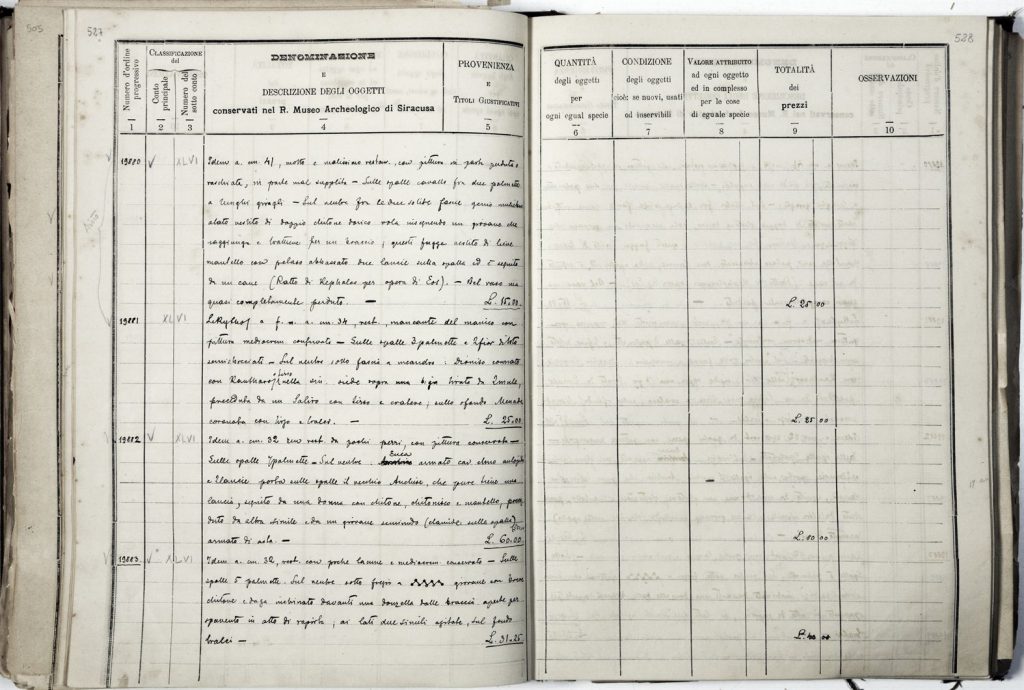 505
527
528
Numero d'ordine progressivo
CLASSIFICAZIONE del
Conto principale
Numero del sotto conto
DENOMINAZIONE
E
DESCRIZIONE DEGLI OGGETTI
conservati nel R. Museo Archeologico di Siracusa
PROVENIENZA
E
TITOLI GIUSTIFICATIVI
1 2 3 4 5
QUANTITÀ
degli oggetti
per
ogni egual specie
CONDIZIONE
degli oggetti
cioè: se nuovi, usati
od inservibili
VALORE ATTRIBUTO
ad ogni oggetto
ed in complesso
per le cose
di eguale specie
TOTALITÀ
dei
prezzi
OSSERVAZIONI
6 7 8 9 10
19880 XLVI Idem a. cm. 41, molto e malissimo restaur., con pittura in parte perduta e
raschiata, in parte mal supplita – Sulle spalle cavallo fra due palmette
a lunghi giraghi – Sul ventre fra le due solite fascie genio muliebre
alato vestito di doppio chitone dorico vola inseguendo un giovane che
raggiunge e trattiene per un braccio; questi fugge vestito di lieve
mantello con petaso abbassato due lancie sulla spalla ed è seguito
da un cane (Ratto di Kephalos per opera di Eos). – Bel vaso ma
quasi completamente perduto. – L. 15.00
L. 25 00
19881 XLVI Lekythos a f. n. a. cm. 34, rest., mancante del manico con
pittura mediocrem conservata – Sulle spalle palmette e fior di loto
– Sul ventre sotto fascia a meandro: Dioniso coronato
con Kantharos nella sin. siede sopra una tirato da 2 mule,
preceduta da un Satiro con tirso e cratere; sullo sfondo Menade
coronata con tirso e tralci. – L. 25.00
L. 25 00
19882 XLVI Idem a. cm. 32 rest. da pochi pezzi, con pittura conservata –
Sulle spalle palmette – Sul ventre: Enea armato con elmo
e 2 lancie porta sulle spalle il vecchio Anchise, che pure tiene una
lancia, seguito da una donna con chitone, chitonisco e mantello, prece
duto da altra simile e da un giovane seminudo (clamide sulle spalle)
armato di asta. – L. 60.00
L. 60 00
19883 XLVI Idem a. cm. 32, rest. con poche lacune e mediocrem conservato – Sulle
spalle 5 palmette. Sul ventre sotto fregio a giovane con
chitone e daga inclinato davanti una donzella dalle braccia aperte per
spavento in atto di rapirla, ai lati due simili agitate, sul fondo
tralci – L. 31.25
L. 40 00